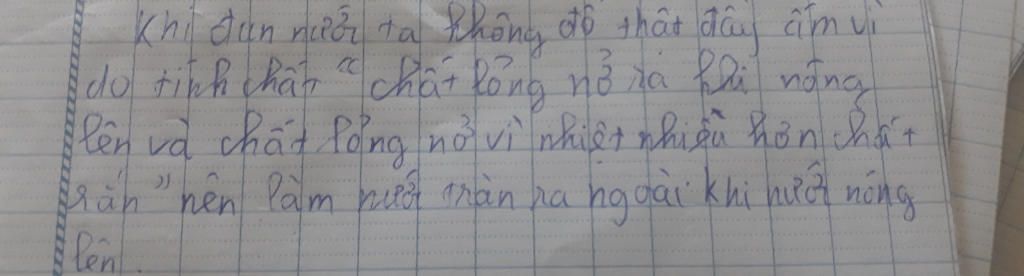 Khi đun nước ta không đổ thật đầy ấm vì
do tính chất " chất lỏng nở ra khi nóng
lên và chất lỏng nở vì nhiệt nhiều hơn chất
rắn " nên làm nước tràn ra ngoài khi nước nóng
lên.